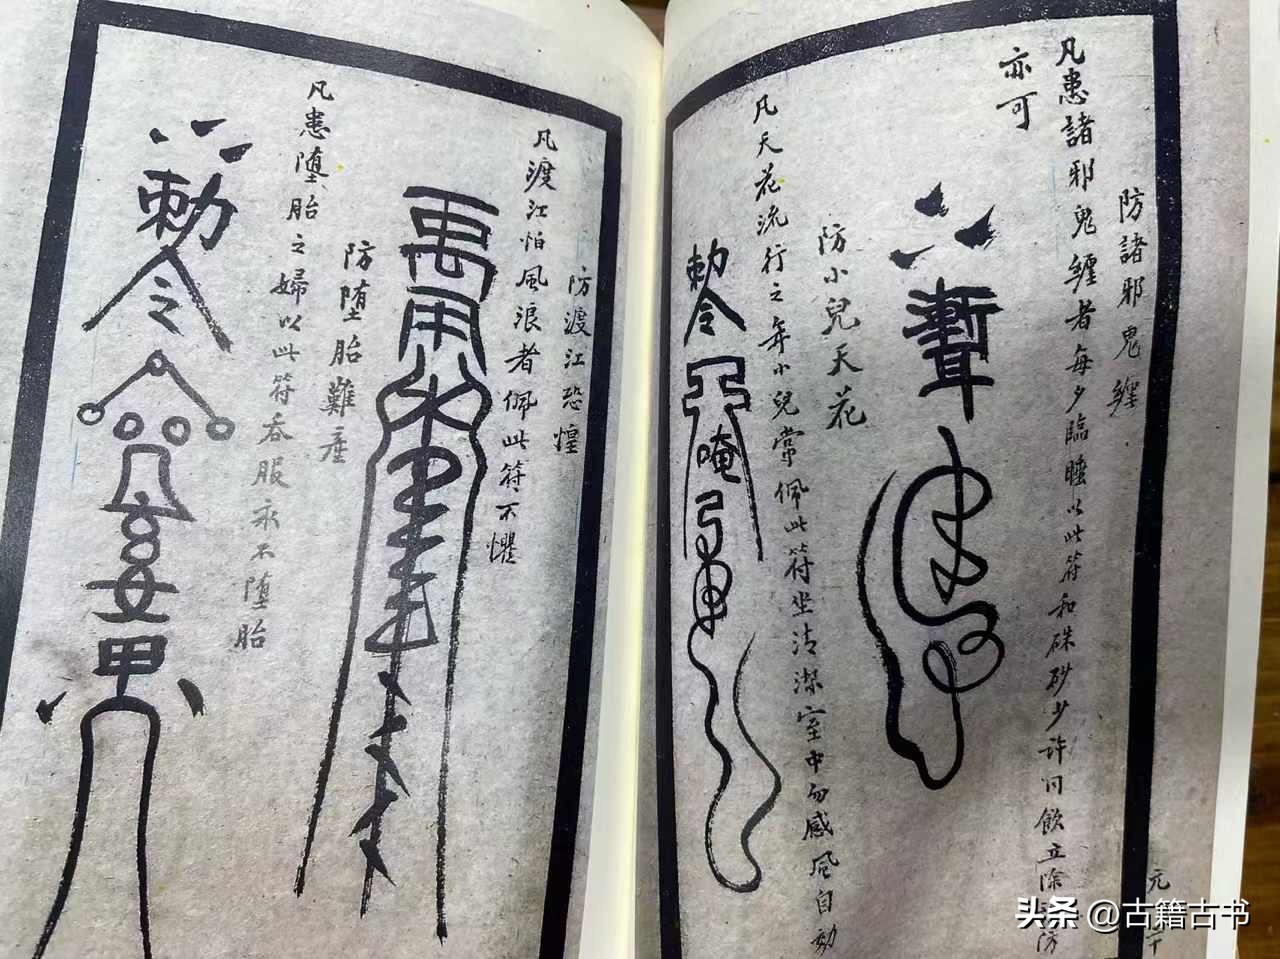 防諸邪鬼纏
凡患諸邪鬼纏者每夕臨睡以此符和硃砂少許同飲立除
亦可
防小兒天花
凡天花流行之年小兒常佩此符坐清潔室中勿感風自
勅令
唵
防渡江恐惶
凡渡江怕風浪者佩此符不懼
防墮胎難產
凡患墮胎之婦以此符吞服永不墮胎
勅令
甲
头条 @古籍古书